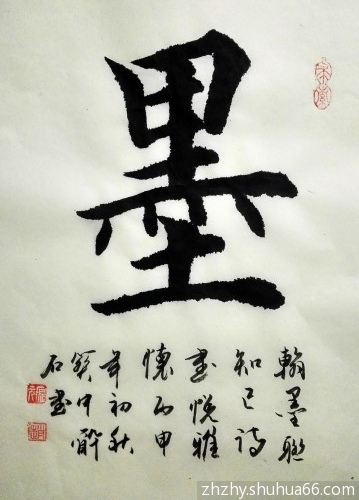 墨
翰墨聚
知己詩
書悅雅
懷丙申
年初秋
石
zhzhyshuhua66.com